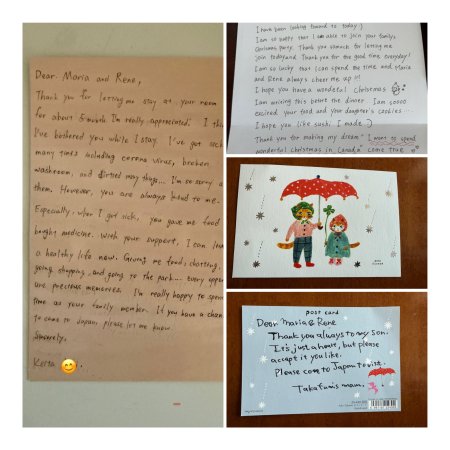 Dear. Maria and Rene,
Thank you for letting me stay at your room
for about 5 month. I'm really appreciated. I
I've bothered you while I stay. I've got sick
many times including corona virus, broken
washroom, and dirtied many things... I'm so sorry
them. However, you are always kind to me.
Especially, when I got sick, you gave me food
bought medicine. With your support, I can
a healthy life now. Giving me food, chatting,
going shopping, and going to the park... Every
are precious memories. I'm really happy to spend
time as your family member. If you have a chance
to come to Japan, please let me know.
Sincerely,
Keita
I have been looking forward to today:)
I am so happy that I am able to join your family's
Christmas party. Thank you so much for letting me
join today and Thank you for the good time everyday!
I am so lucky that I can spend the time and Maria
and Rene always cheer me up!!!
I hope you have a wonderful Christmas
I am writing this before the dinner. I am soooo
excited your food and your daughter's cookies...
I hope you like sushi I made:)
Thank you for making my dream "I want to spend
wonderful Christmas in Canada" come true
post card
Dear Maria & Rene
Thank you always to my son.
It's just a                , but please
accept it you like.
Please come to Japan to visit.
Takafumi's mam.